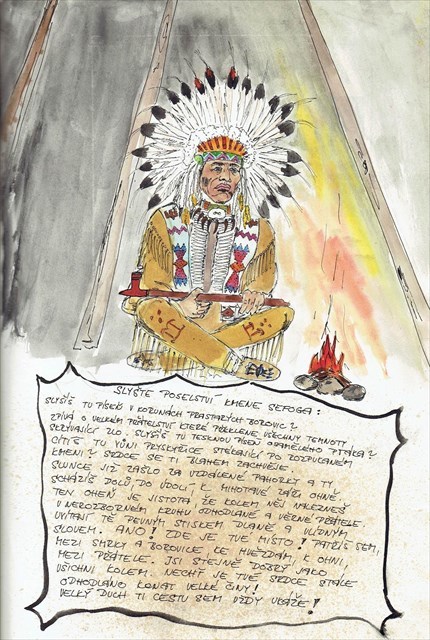 SLYŠTE POSELSTVÍ KMENE SEFOGA:
SLYŠÍŠ TU PÍSEŇ V KORUNÁCH PRASTARÝCH BOROVIC?
ZPÍVÁ O VELKÉM PŘÁTELSTVÍ KTERÉ PŘEKLENE VŠECHNY TEMNOTY
SKRÝVAJÍCÍ ZLO. SLYŠÍŠ TU TESKNOU PÍSEŇ OSAMĚLÉHO PTÁKA?
CÍTÍŠ TU VŮNI PRYSKYŘICE STÉKAJÍCÍ PO ROZPUKANÉM
KMENI? SRDCE SE TI BLAHEM ZACHVĚJE.
SLUNCE JIŽ ZAŠLO ZA VZDÁLENÉ PAHORKY A TY
SCHÁZÍŠ DOLŮ DO ÚDOLÍ K MIHOTAVÉ ZÁŘI OHNĚ.
TEN OHEŇ JE JISTOTA, ŽE KOLEM NĚJ NALEZNEŠ
V NEROZBORNÉM KRUHU ODHODLANÉ A VĚRNÉ PŘÁTELE.
UVÍTANÍ TĚ PEVNÝM STISKEM DLANĚ A VLÍDNÝM
SLOVEM. ANO! ZDE JE TVÉ MÍSTO! PATŘÍŠ SEM,
MEZI SMRKY A BOROVICE, KE HVĚZDÁM, K OHNI,
MEZI PŘÁTELE. JSI STEJNĚ DOBRÝ JAKO
VŠICHNI KOLEM. NECHŤ JE TVÉ SRDCE STÁLE
ODHODLÁNO KONAT VELKÉ ČINY!
VELKÝ DUCH TI CESTU SEM VŽDY UKÁŽE!